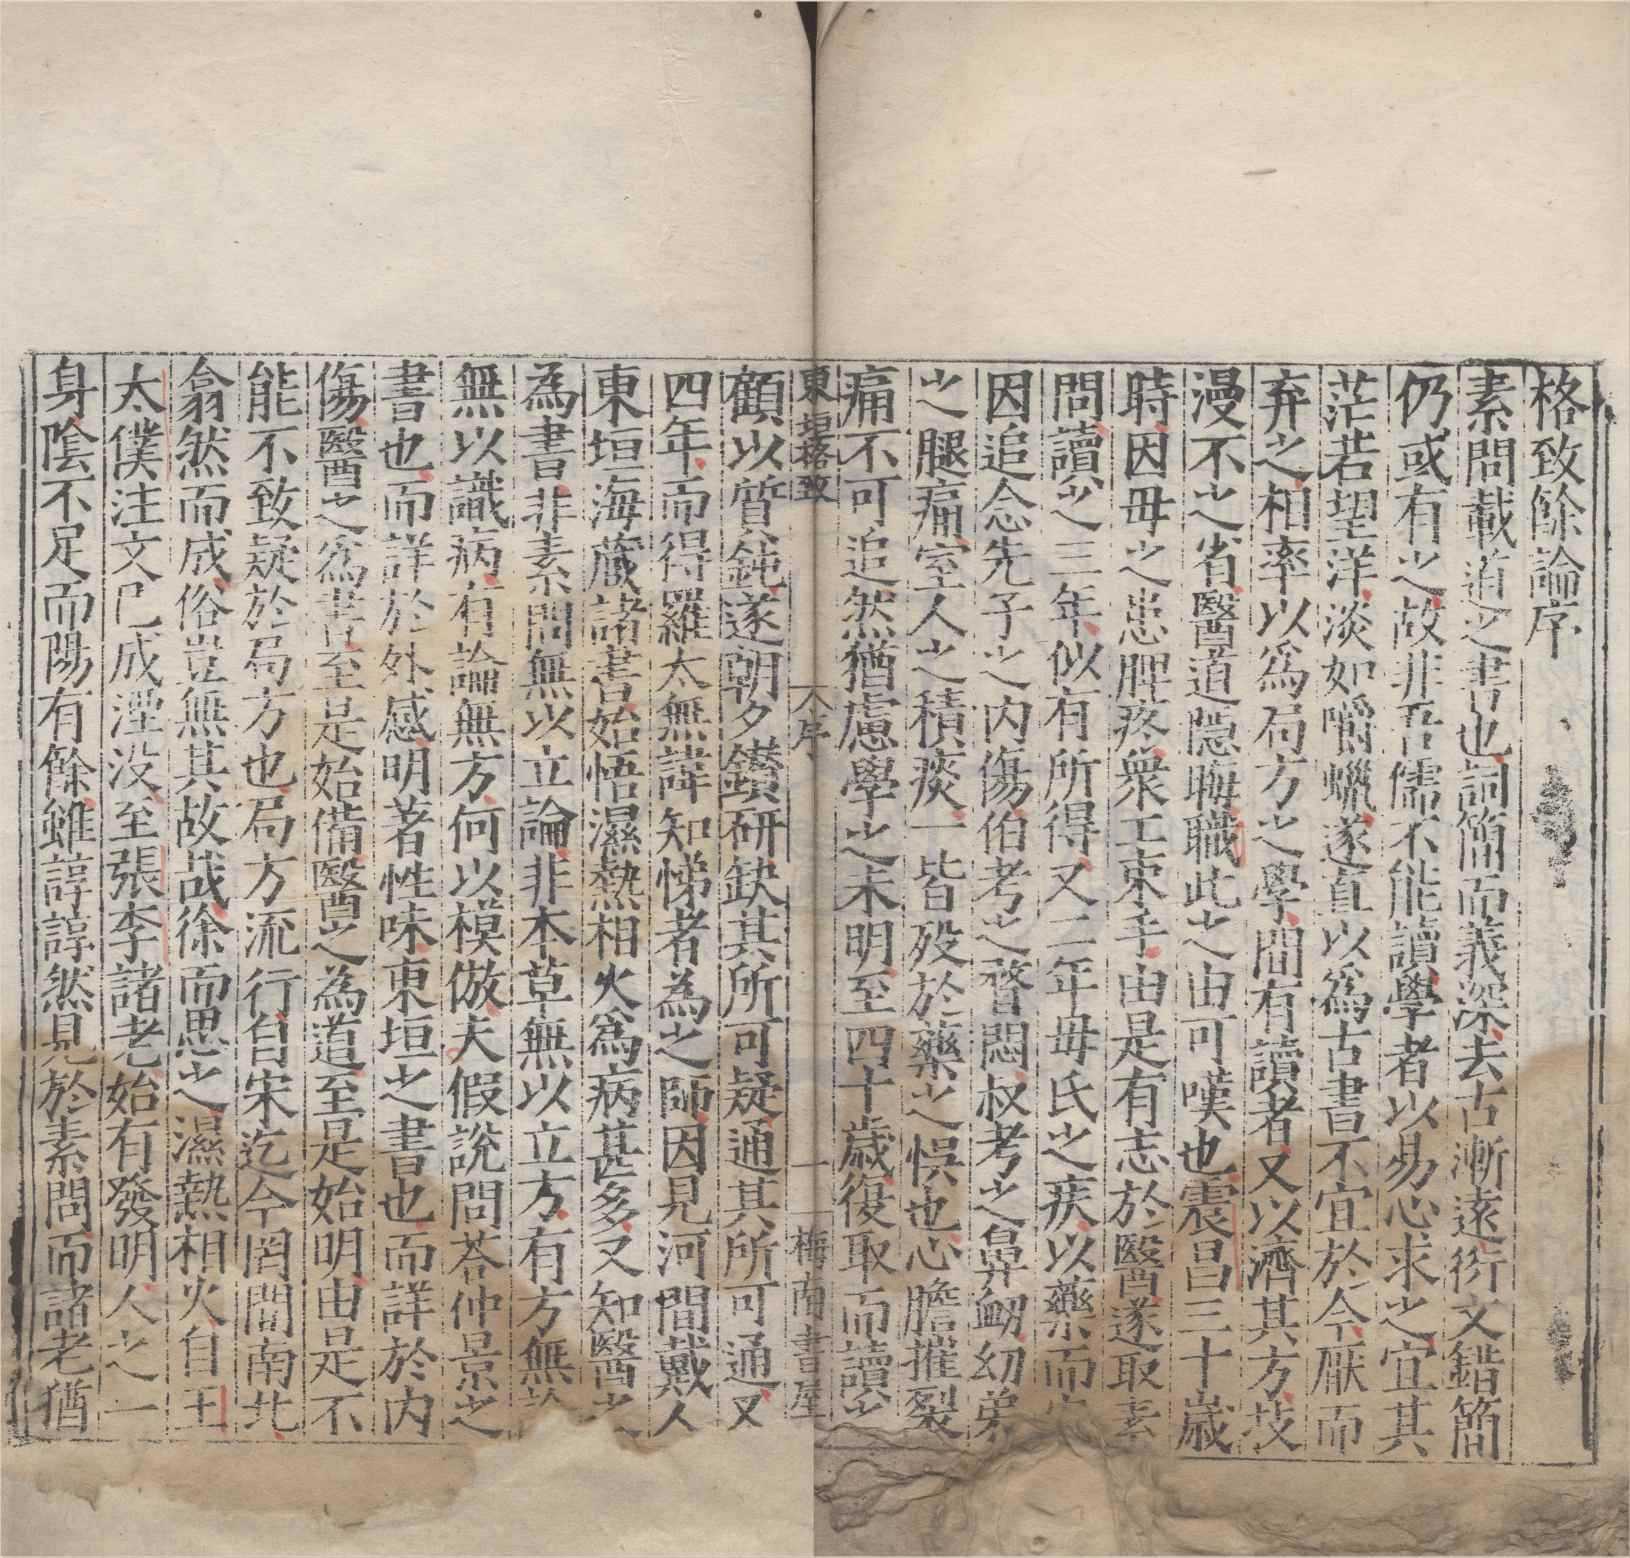 格致餘論序
素問載道之書也詞簡而義深去古漸遠衍文錯簡
仍或有之故非吾儒不能讀學者以易心求之宜其
茫若望洋淡如嚼蠟遂直以爲古書不宜於今厭而
弃之相率以爲局方之學間有讀者又以濟其方技
漫不之省醫道隱晦職此之由可嘆也震昌三十歲
時因母之患脾疼衆工束手由是有志於醫遂取素
問讀之三年似有所得又二年母氏之疾以藥而
因追念先子之内傷伯考之瞀悶叔考之鼻衄幼弟
之腿痛室人之積痰一皆殁於藥之悞也心膽摧裂
痛不可追然猶慮學之未明至四十歲復取而讀之
東垣格致 序 一 梅南書屋
顧以質鈍遂朝夕鑚研缺其所可疑通其所可通又
四年而得羅太無諱知悌者為之師因見河間戴人
東垣海蔵諸書始悟濕熱相火爲病甚多又知醫之
為書非素問無以立論非本草無以立方有方無
無以識病有論無方何以模倣夫假說問荅仲景之
書也而詳於外感明著性味東垣之書也而詳於内
傷醫之爲書至是始備醫之為道至是始明由是不
能不致疑於局方也局方流行自宋迄今罔間南北
翕然而成俗豈無其故哉徐而思之濕熱相火自王
太僕注文已成湮没至張李諸老始有發明人之一
身陰不足而陽有餘雖諄諄然見於素問而諸老猶